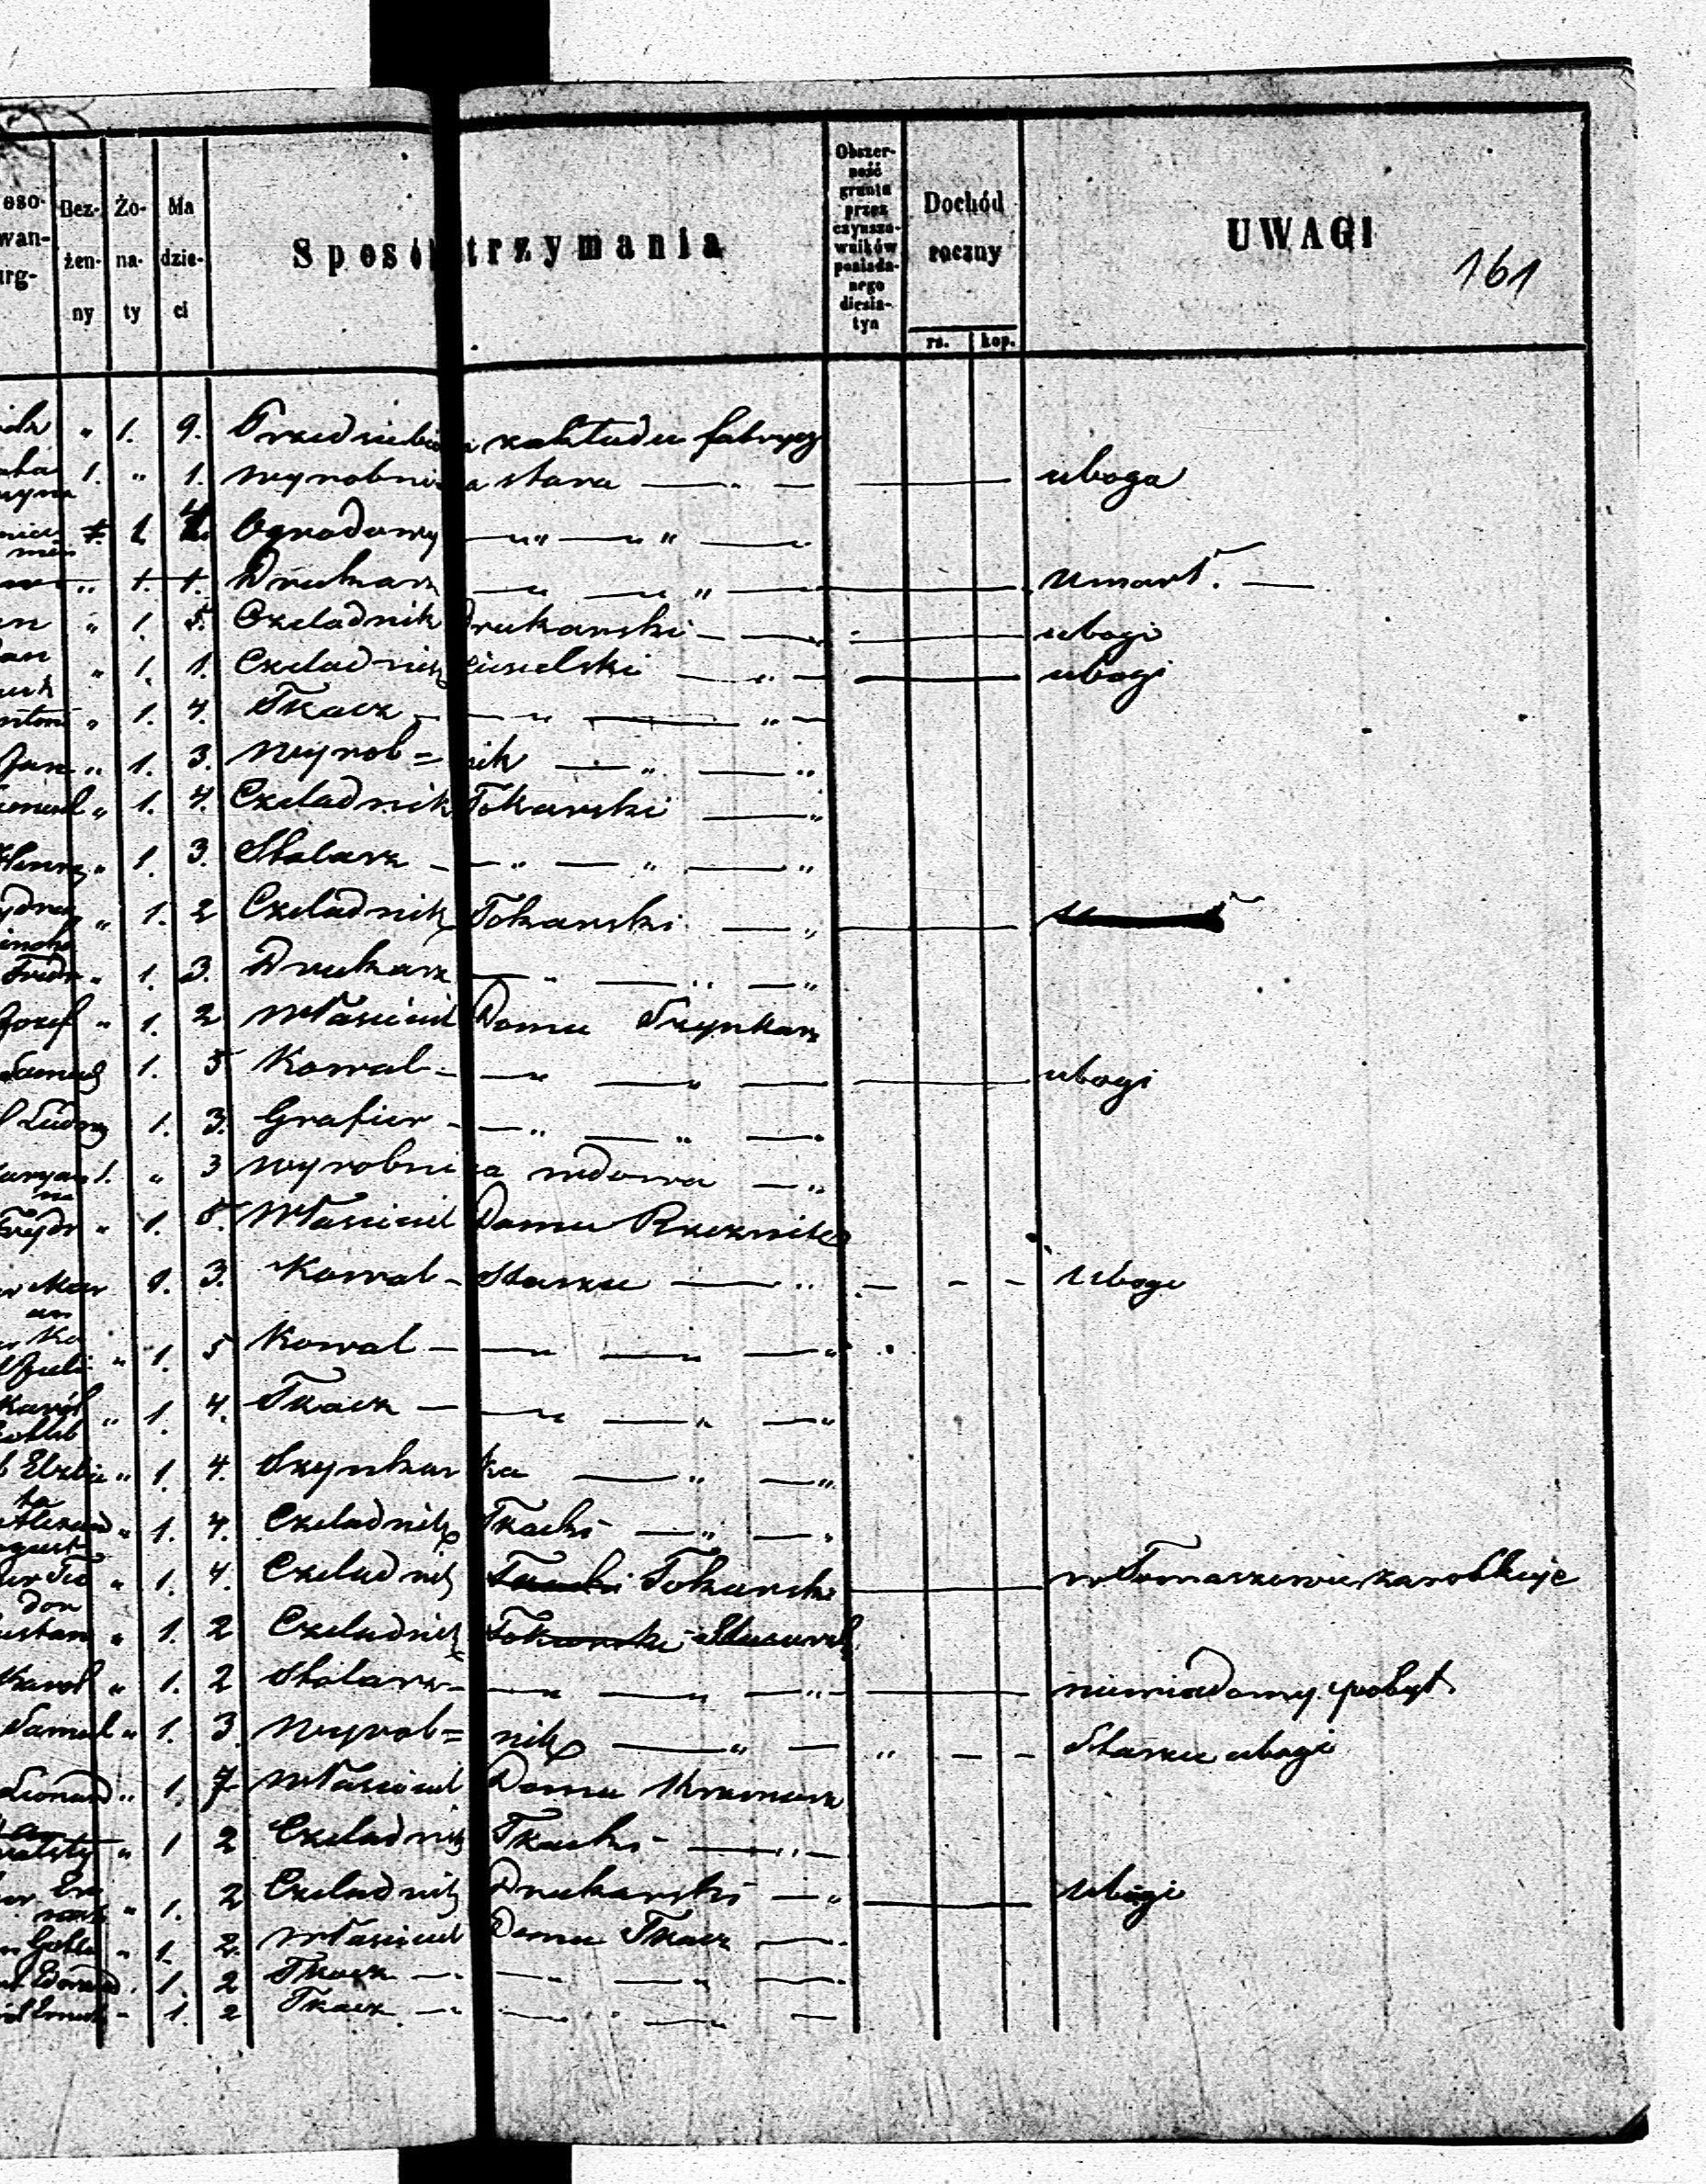 161
Bez-żen-ny Żo-na-ty Ma dzie-ci Sposób trzymania Obszer-ność gruntu przez czynszo-wników posiada-nego diesia-tyn Dochód roczny rs. kop. UWAGI
" 1. 9. zakładu fabrycz
1. " 1. wyrobnica stara — " — uboga
1 Ogrodowy — " — " —
" 1. 1. Drukarz — — " — umarł. —
an " 1. 5. Czeladnik Drukarski — — ubogi
" 1. 1. Czeladnik Ciesielski — " — ubogi
" 1. 4. Tkacz — — " — " —
Jan " 1. 3. wyrob= nik — " — "
" 1. 4. Czeladnik Tokarski — "
Henry " 1. 3. Stolarz — — " — " — "
" 1. 2 Czeladnik Tokarski — "
Fridr " 1. 3. Drukarz — " — " — "
Józef " 1. 2 Właściciel Domu Szynkarz
Samuel 1. 5 Kowal — — " — " — ubogi
Ludwig 1. 3. Grafier — — " — " — "
1. " 3 wyrobnica wdowa — "
Frydr " 1. 5. Właściciel Domu Rzeźnik
1. 3. Kowal — Starzec — " — — — Ubogi
" 1. 5 Kowal — — " — " — "
Karól " 1. 4. Tkacz — — " — " — "
Elzbie ta " 1. 4. Szynkarka — " — "
" 1. 4. Czeladnik Tkacki — " — "
" 1. 4. Czeladnik Tkacki Tokarski w Tomaszowie zarobkuje
" 1. 2 Czeladnik Tokarski Slusarsk
Karol " 1. 2 Stolarz — — " — — " — niewiadomy pobyt
Samuel " 1. 3. wyrob= nik — " — " — — Starzec ubogi
Leonard " 1. 7 Właściciel Domu
" 1 2 Czeladnik Tkacki — " —
" 1. 2 Czeladnik Drukarski — " — Ubogi
" 1. 2. Właściciel Domu Tkacz —
1. 2 Tkacz — — " — " —
" 1. 2 Tkacz — " — " — —